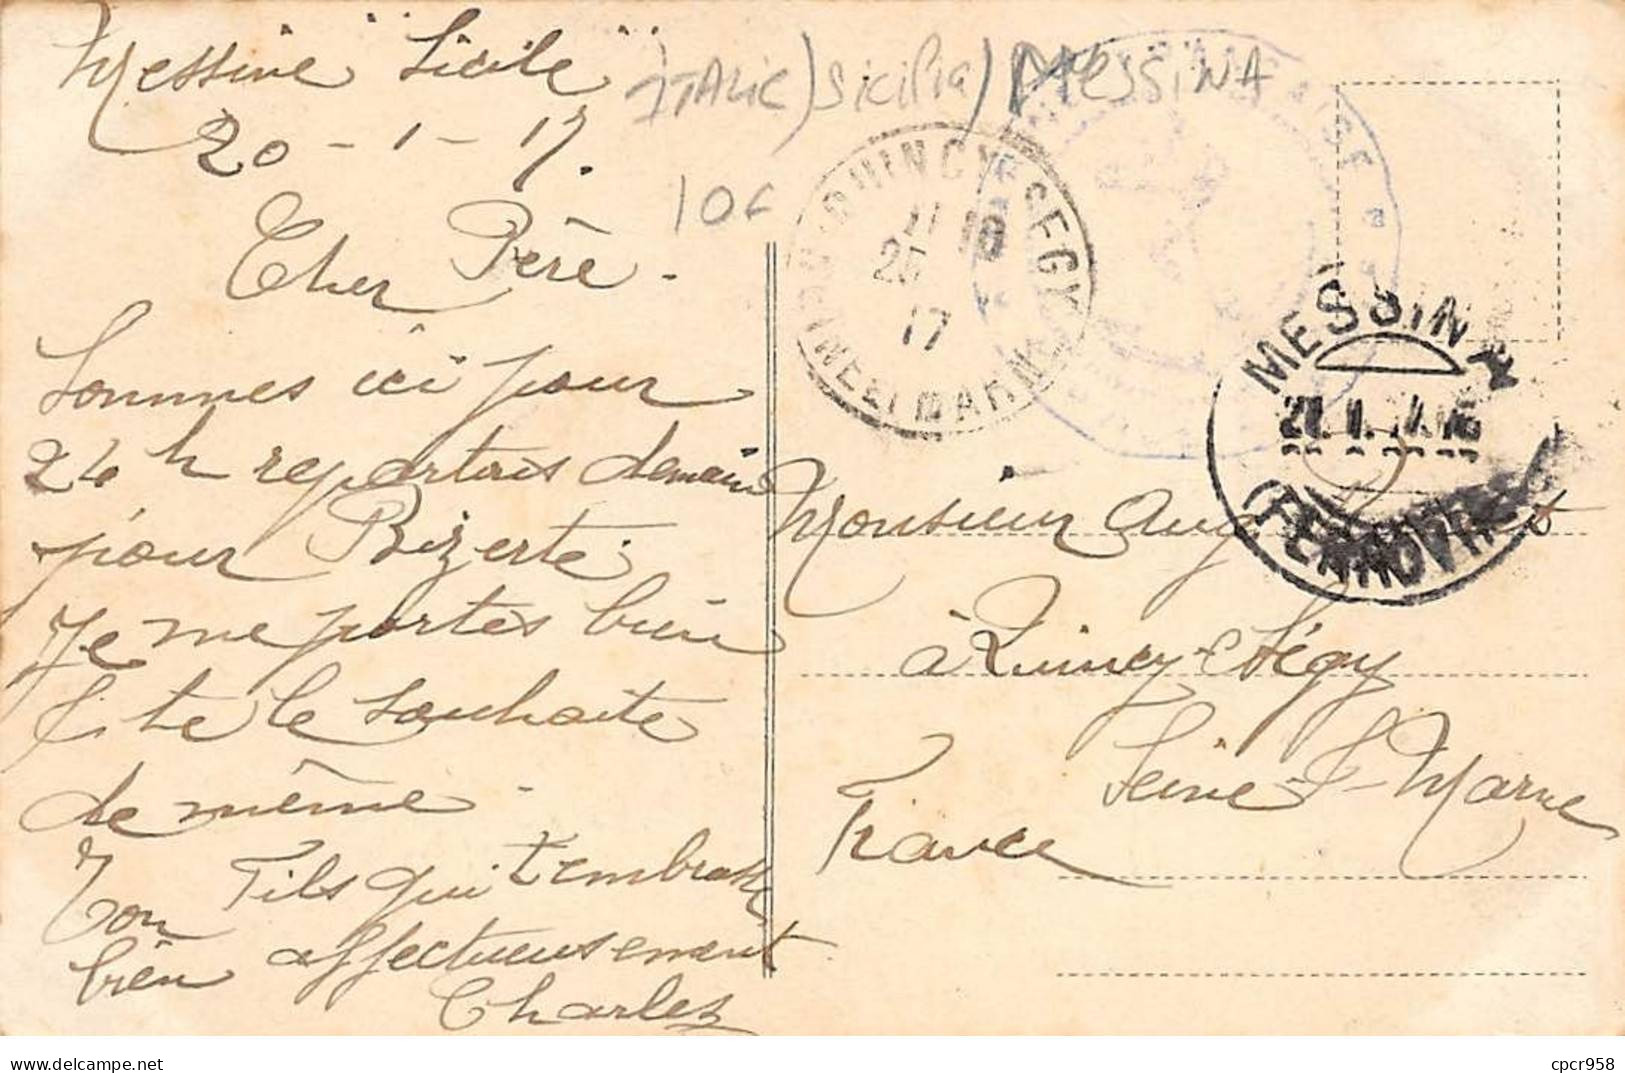 Messine "Sicile"
20-1-17.
Cher Père.
Sommes ici pour
24 h repartons demain
pour Bizerte.
Je me portes bien
& te le souhaite
de même.
Ton Fils qui t'embrasse
bien affectueusement
Charles
ITALIE/Sicilia/MESSINA
10€
QUINCY-SEGY
11 10
17
SEINE-ET-MARNE
MESSINA
21.1.17.16
(FERROVIA)
Monsieur Aug
à Quincy-Ségy
Seine-&-Marne
France
delcampe.net
cpcr958